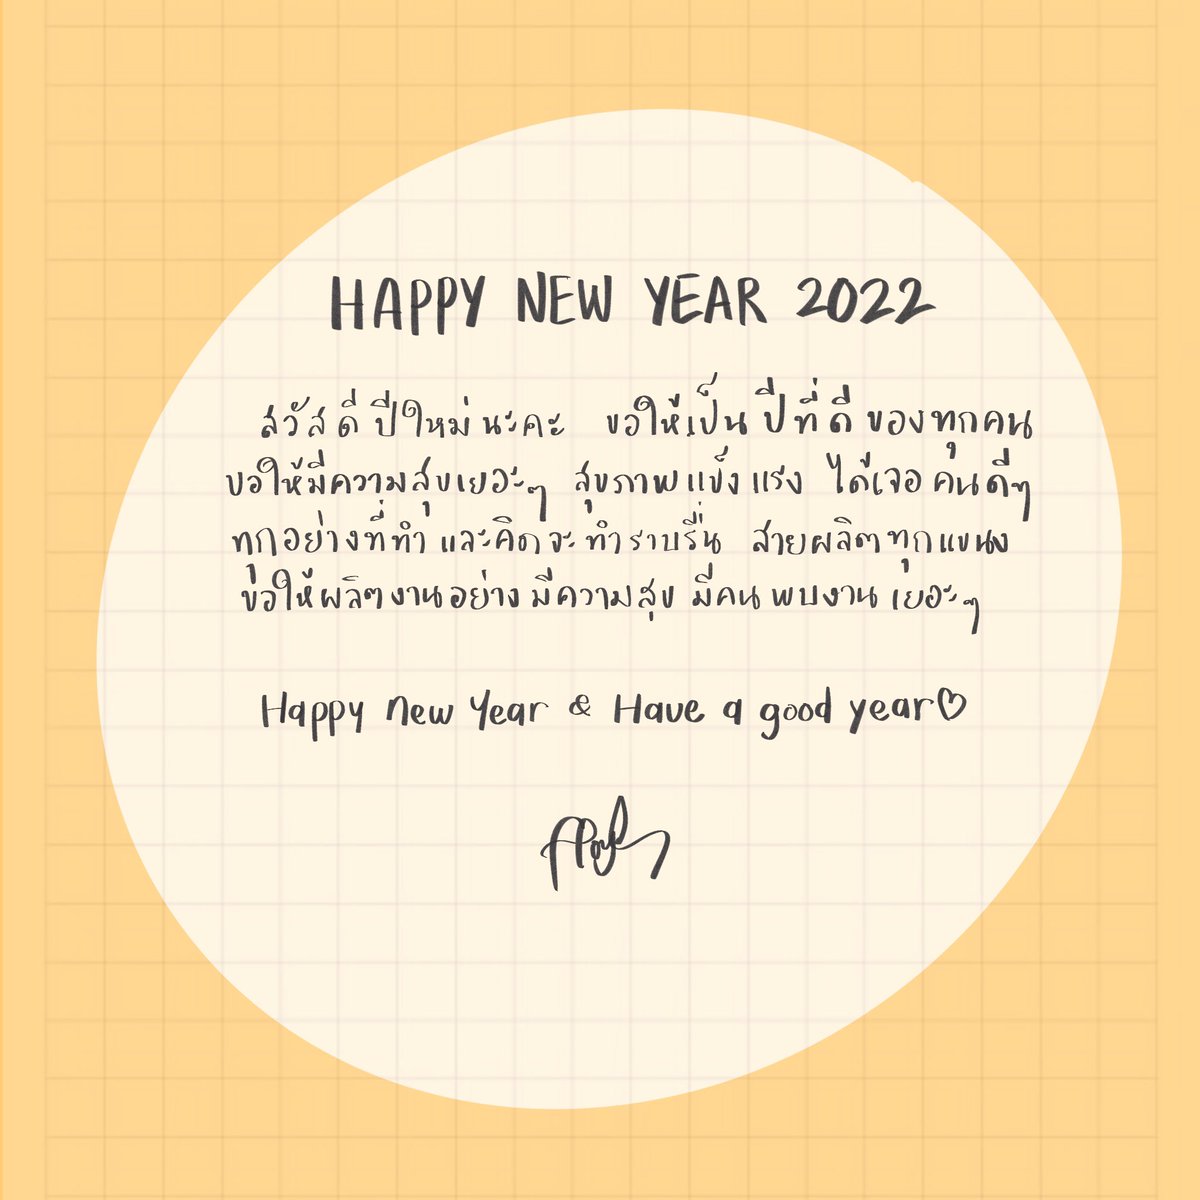 HAPPY NEW YEAR 2022
สวัสดีปีใหม่นะคะ ขอให้เป็นปีที่ดีของทุกคน
ขอให้มีความสุขเยอะๆ สุขภาพแข็งแรง ได้เจอคนดีๆ
ทุกอย่างที่ทำและคิดจะทำราบรื่น สายผลิตทุกแขนง
ขอให้ผลิตงานอย่างมีความสุข มีคนพบงานเยอะๆ
Happy New Year & Have a good year♡